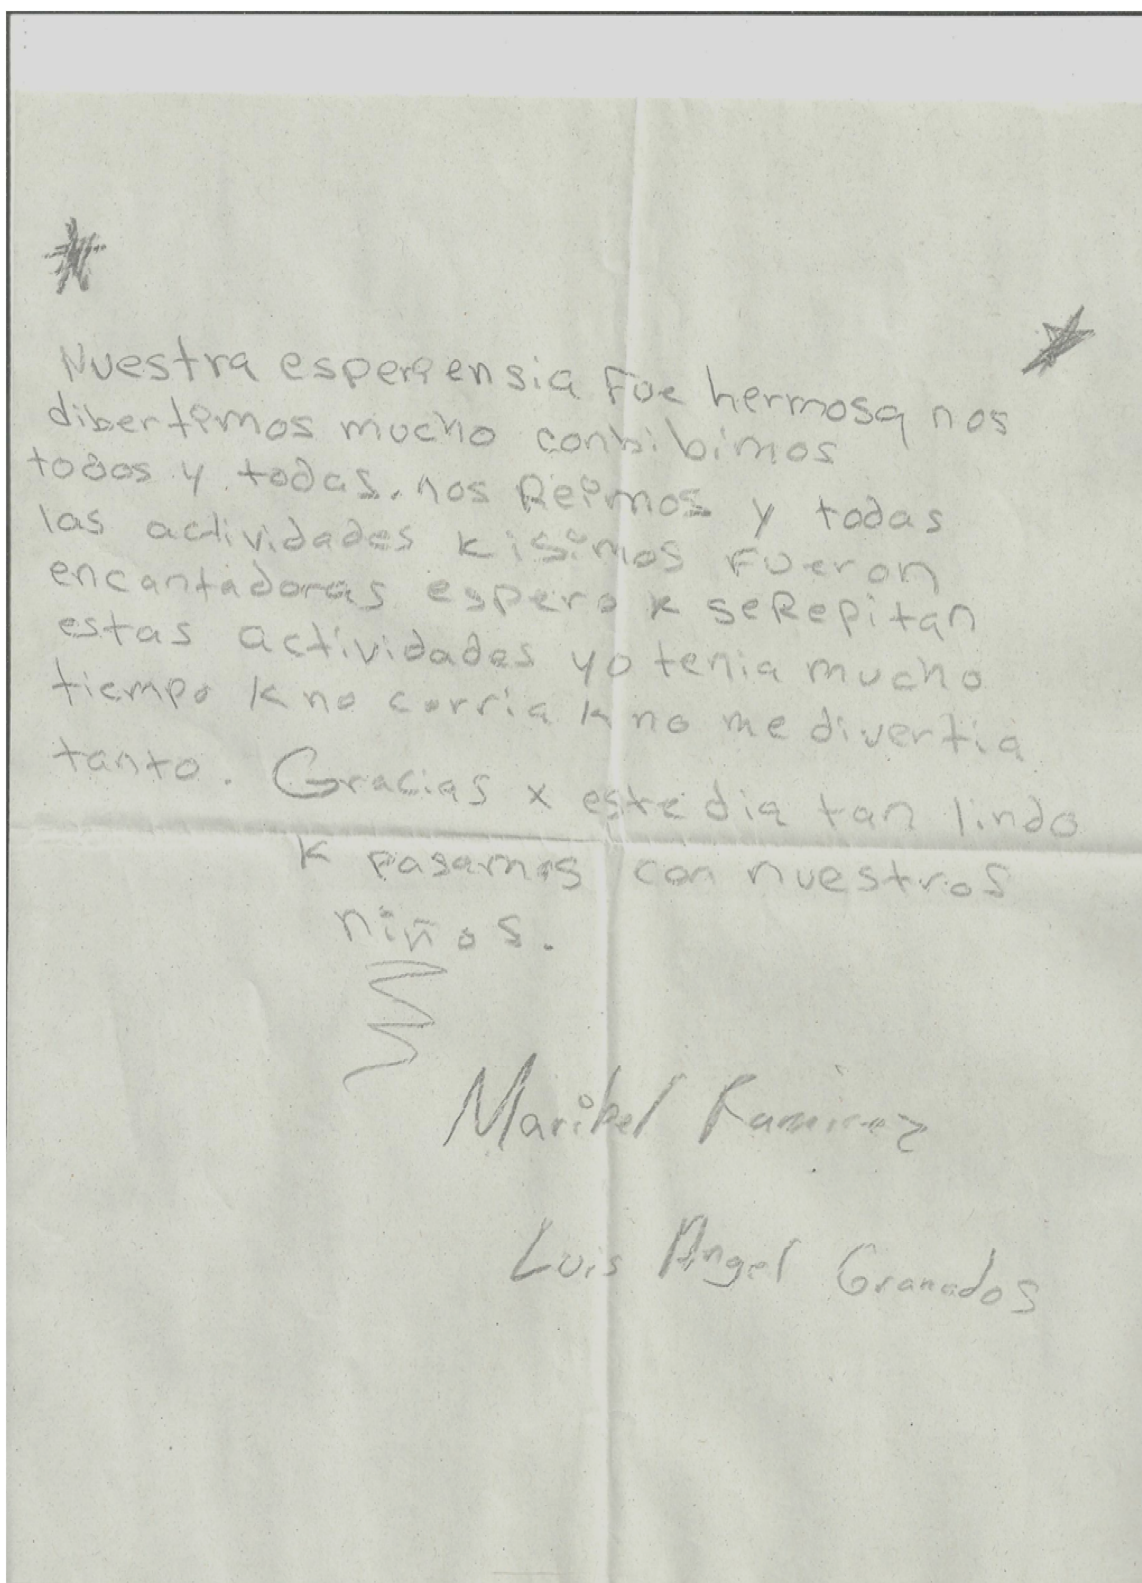 Nuestra esperiensia Fue hermosa nos
dibertimos mucho conbibimos
todos y todas. nos Reimos y todas
las actividades kisimos Fueron
encantadoras espero k seRepitan
estas actividades yo tenia mucho
tiempo k no corria k no me divertia
tanto. Gracias x este dia tan lindo
k pasamos con nuestros
niños.
Maribel Ramirez
Luis Angel Granados